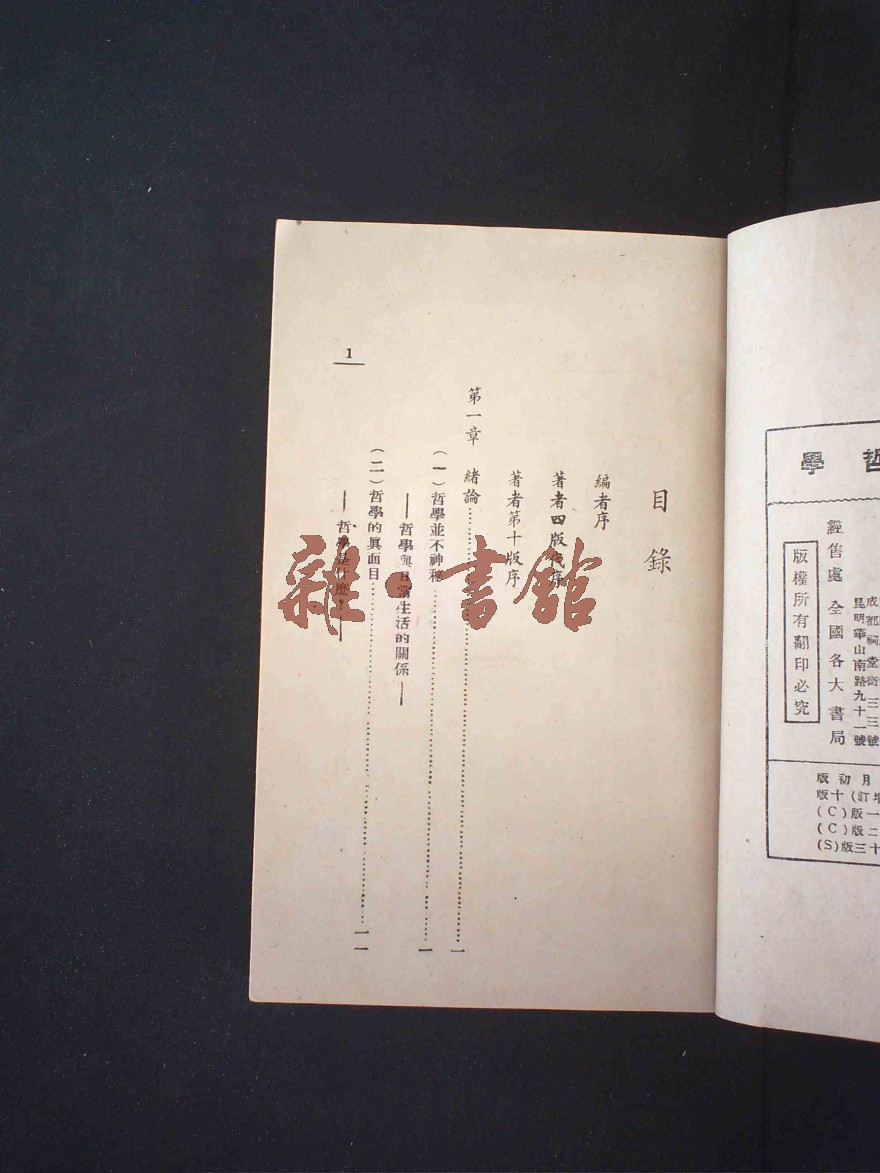 目錄
編者序
著者四版代序
著者第十版序
第一章 緒論……一
(一)哲學並不神秘……一
——哲學與日常生活的關係——
(二)哲學的眞面目……一一
——哲學是什麽?——
1
雜·書館
哲學
經售處 全國各大書局
版權所有翻印必究
成都祠堂街三三號
昆明華山南路九十一號
月初版
增訂(十版
(C)版一
(C)版二
(S)版三十